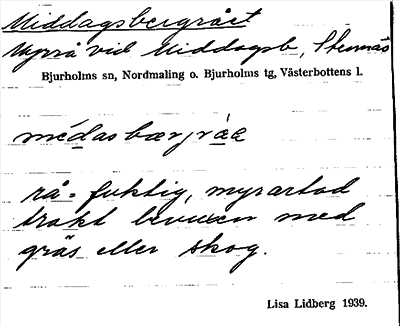 Middagsbergrået
Myrrå vid Middagsb, Stennäs
Bjurholms sn, Nordmaling o. Bjurholms tg, Västerbottens l.
médasbærjråa
rå = fuktig, myrartad
trakt bevuxen med
gräs eller skog.
Lisa Lidberg 1939.